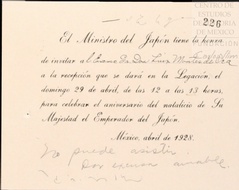 CENTRO DE
ESTUDIOS
DE HISTORIA
DE MEXICO
226
El Ministro del Japón tiene la honra
de invitar a
a la recepción que se dará en la Legación, el
domingo 29 de abril, de las 12 a las 13 horas,
para celebrar el aniversario del natalicio de Su
Majestad el Emperador del Japón.
México, abril de 1928.
No puede asistir
Dar excusa amable.